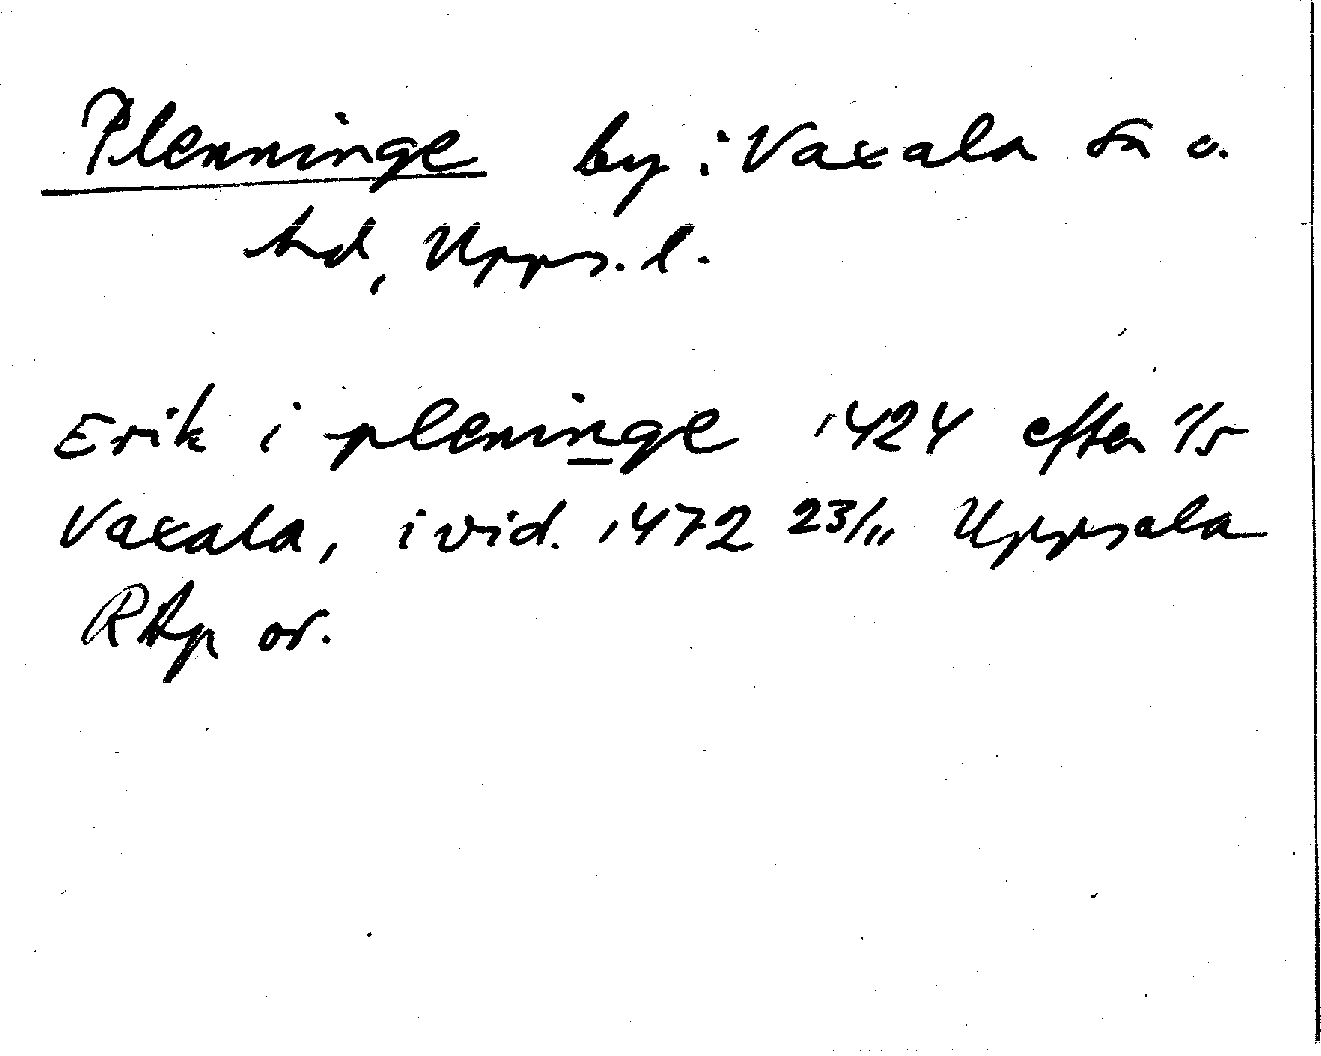 Plenninge by i Vaxala sn o.
hd, Upps. l.
Erik i pleninge 1424 efter 1/5
Vaxala, i vid. 1472 23/11 Uppsala
RAp or.